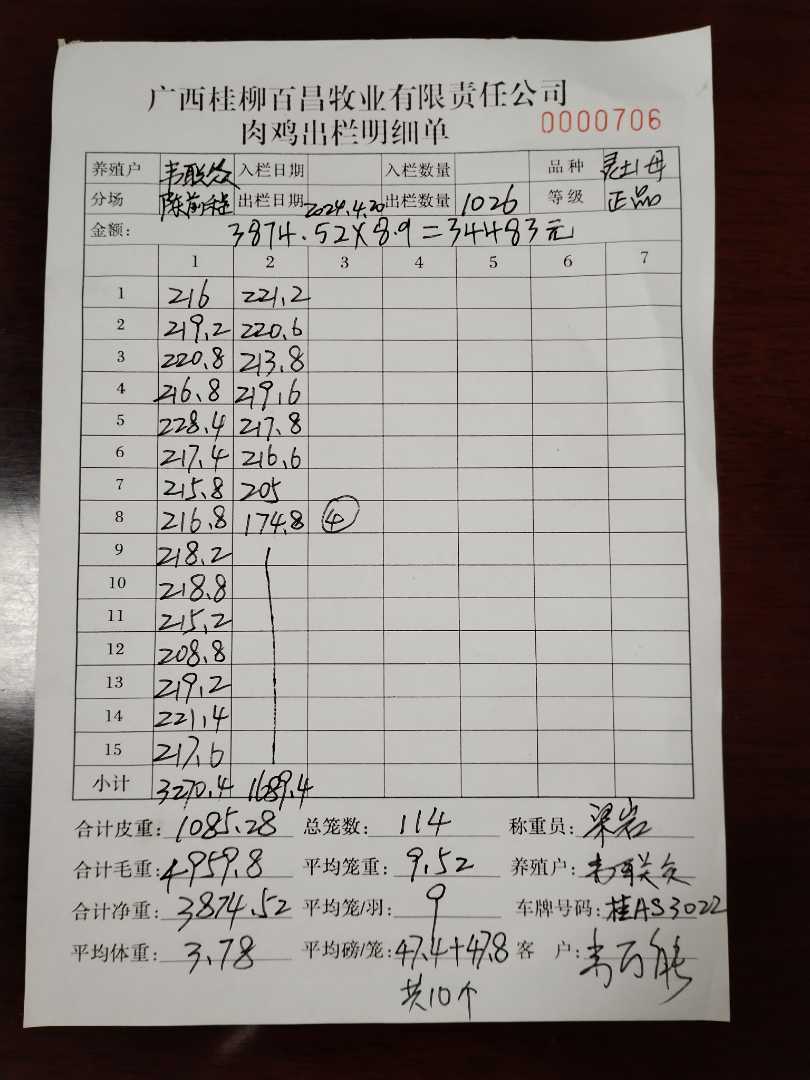 广西桂柳百昌牧业有限责任公司
肉鸡出栏明细单 0000706
养殖户 韦联众 入栏日期 入栏数量 品种 灵土母
分场 陈前程 出栏日期 2024.4.20 出栏数量 1026 等级 正品
金额: 3874.52×8.9=34483元
1 2 3 4 5 6 7
1 216 221.2
2 219.2 220.6
3 220.8 213.8
4 216.8 219.6
5 228.4 217.8
6 217.4 216.6
7 215.8 205
8 216.8 174.8 ④
9 218.2
10 218.8
11 215.2
12 208.8
13 219.2
14 221.4
15 217.6
小计 3270.4 1689.4
合计皮重: 1085.28 总笼数: 114 称重员: 梁岩
合计毛重: 4959.8 平均笼重: 9.52 养殖户:
合计净重: 3874.52 平均笼/羽: 9 车牌号码: 桂AS3022
平均体重: 3.78 平均磅/笼: 47.4+47.8 客 户:
共10个